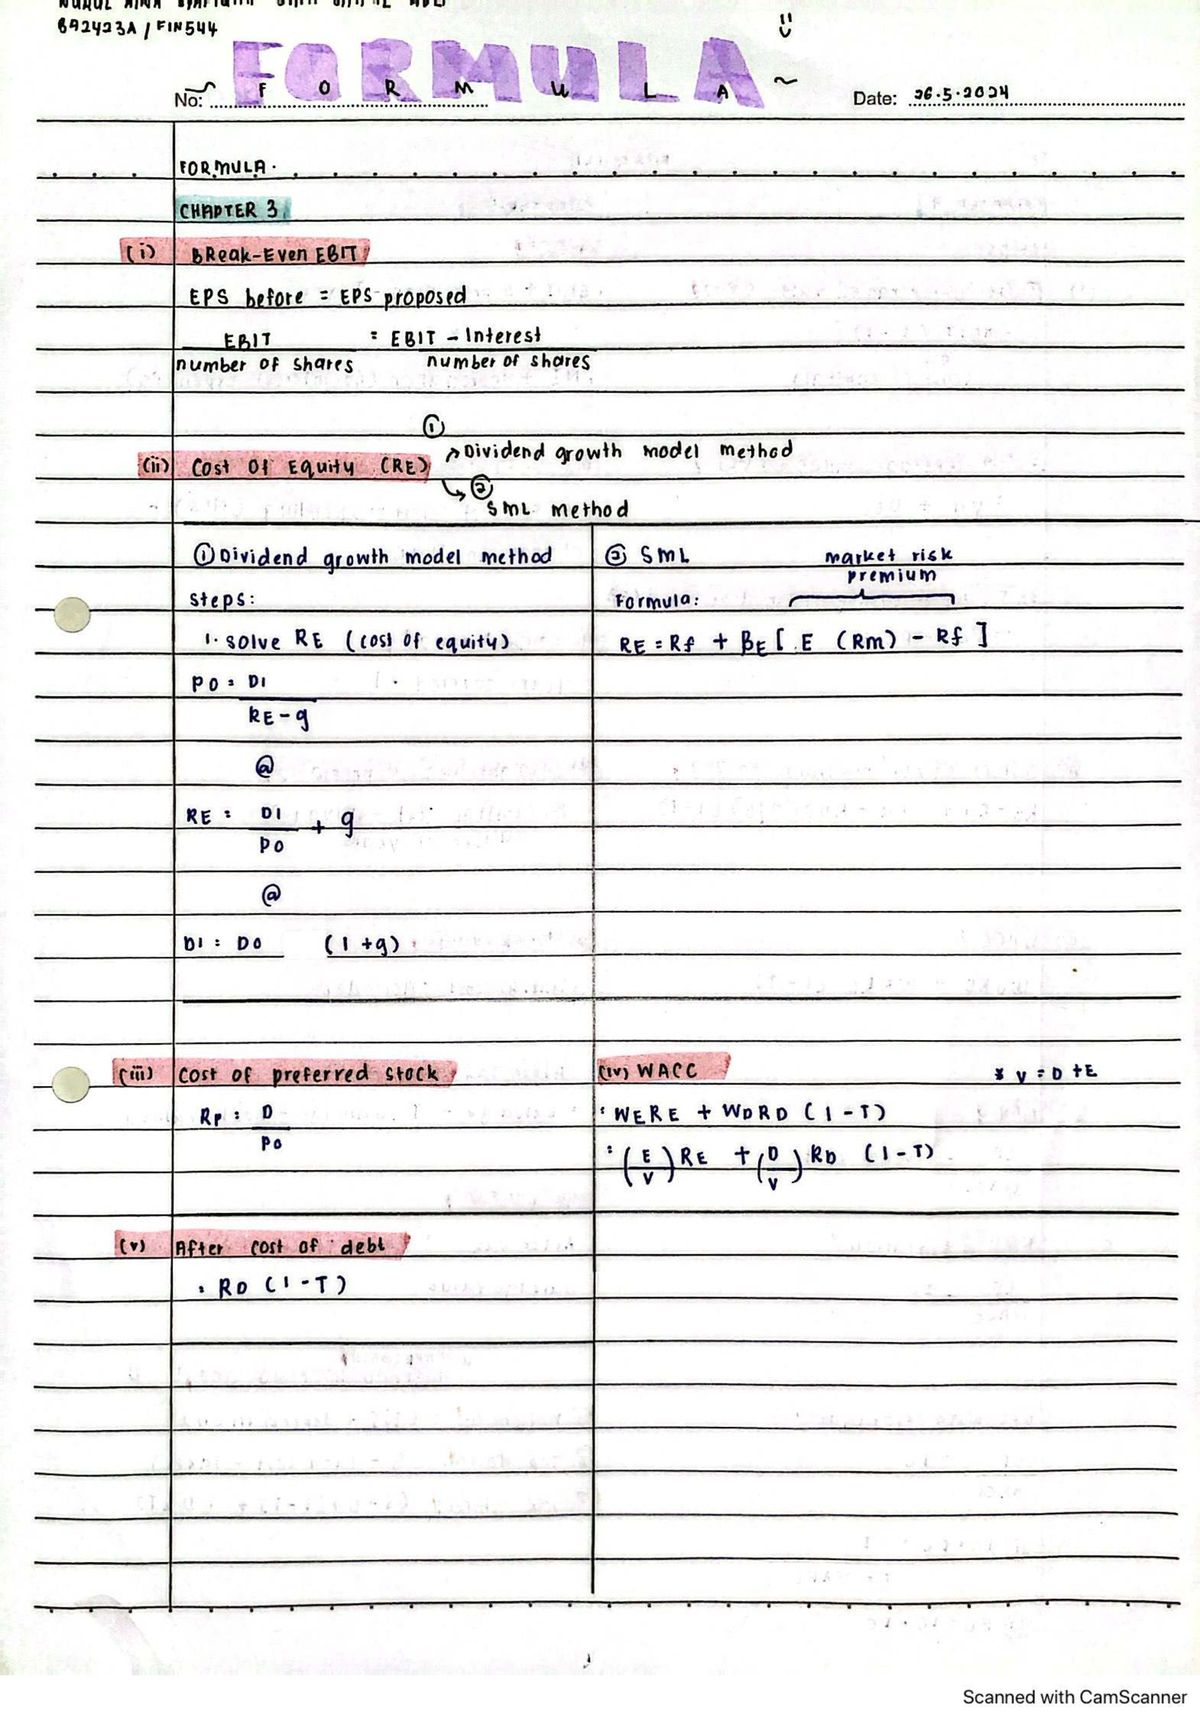 BA2423A / FIN544
FORMULA
No: F O R M U L A
Date: 26.5.2024
FORMULA.
CHAPTER 3
(i) BReak-Even EBIT
EPS before = EPS proposed
EBIT = EBIT - Interest
number of shares number of shares
①
(ii) Cost Of Equity (RE) ↗ Dividend growth model method
↳ ②
SML method
① Dividend growth model method
steps:
1. solve RE (cost of equity)
P0 = D1
RE - g
@
RE = D1 + g
P0
@
D1 = D0 (1 + g)
② SML market risk
premium
Formula:
RE = Rf + BE [ E (Rm) - Rf ]
(iii) Cost of preferred stock
Rp = D
P0
(iv) WACC * V = D + E
= WERE + WDRD (1 - T)
= (E/V) RE + (D/V) RD (1 - T)
(v) After cost of debt
= RD (1 - T)
Scanned with CamScanner